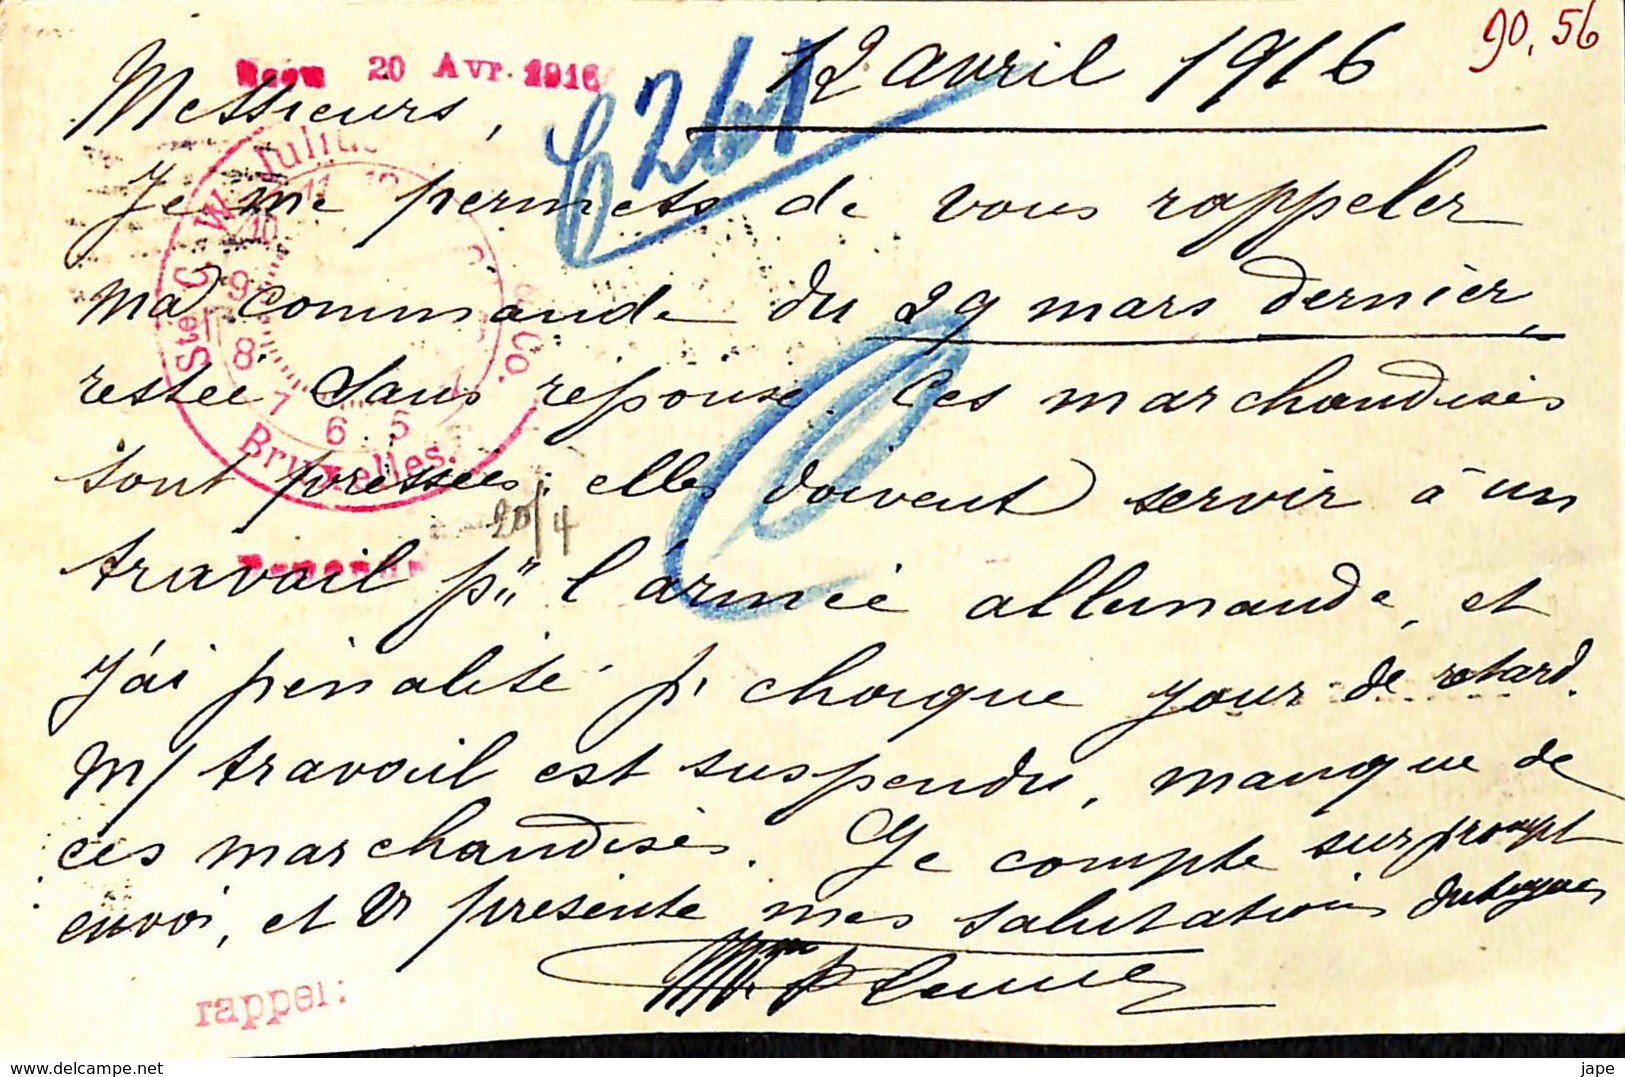 90.56
12 avril 1916
20 Avr. 1916
6261
Messieurs,
Je me permets de vous rappeler
ma commande du 29 mars dernier,
restée sans réponse. Ces marchandises
sont pressées; elles doivent servir à un
travail pr l'armée allemande, et
j'ai pénalité pr chaque jour de retard.
M/ travail est suspendu, manque de
ces marchandises. Je compte sur prompt
envoi, et vs présente mes salutations
Sté C. W. Julius & Co.
Bruxelles.
11 12
10
9
8
7
6 5
20/4
rappel:
www.delcampe.net
jape